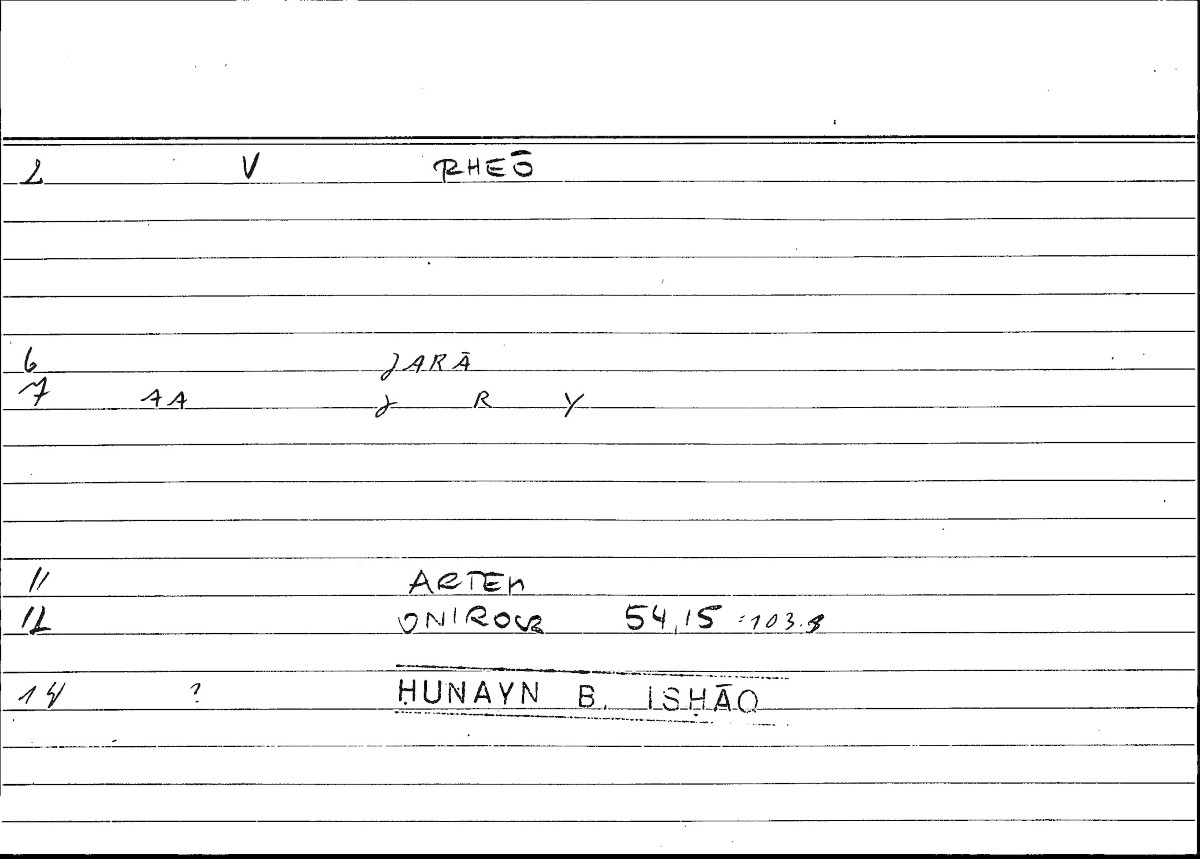 2 V RHEŌ
6 JARĀ
7 AA J R Y
11 ARTEM
12 ONIROCR 54,15 = 103.8
14 ? ḤUNAYN B. ISḤĀQ